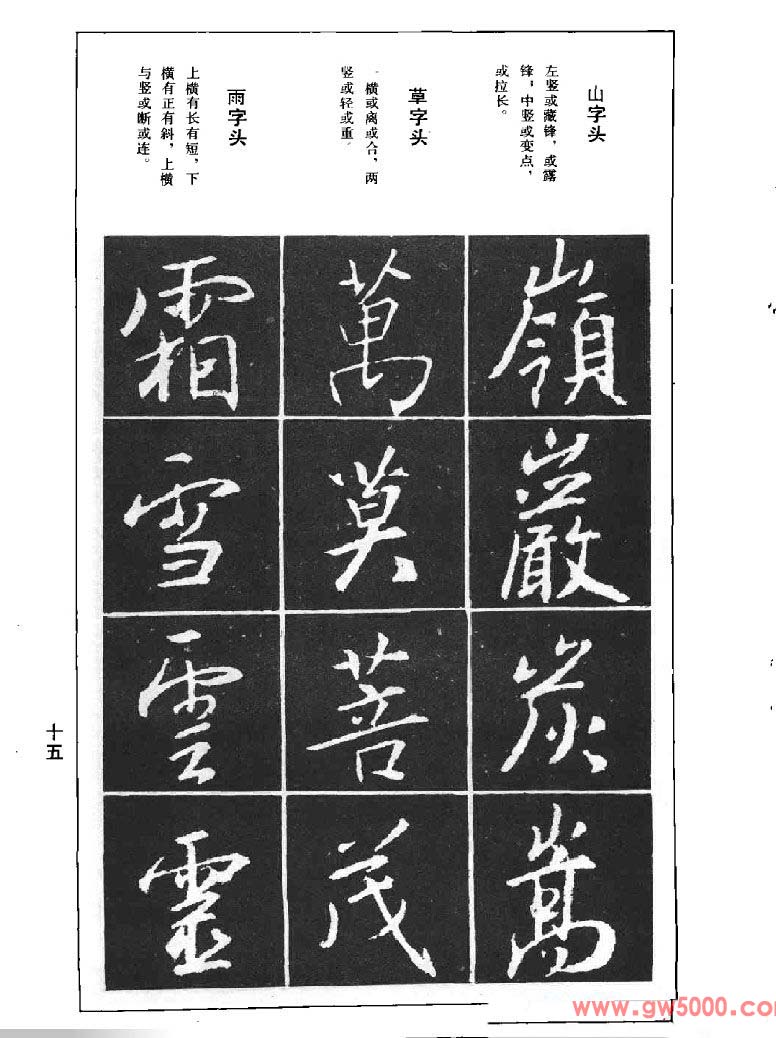 山字头
左竖或藏锋，或露
锋，中竖或变点，
或拉长。
草字头
一横或离或合，两
竖或轻或重
雨字头
上横有长有短，下
横有正有斜，上横
与竖或断或连。
嶺
巖
炭
嵩
萬
莫
菩
茂
霜
雪
雲
靈
十五
www.gw5000.com